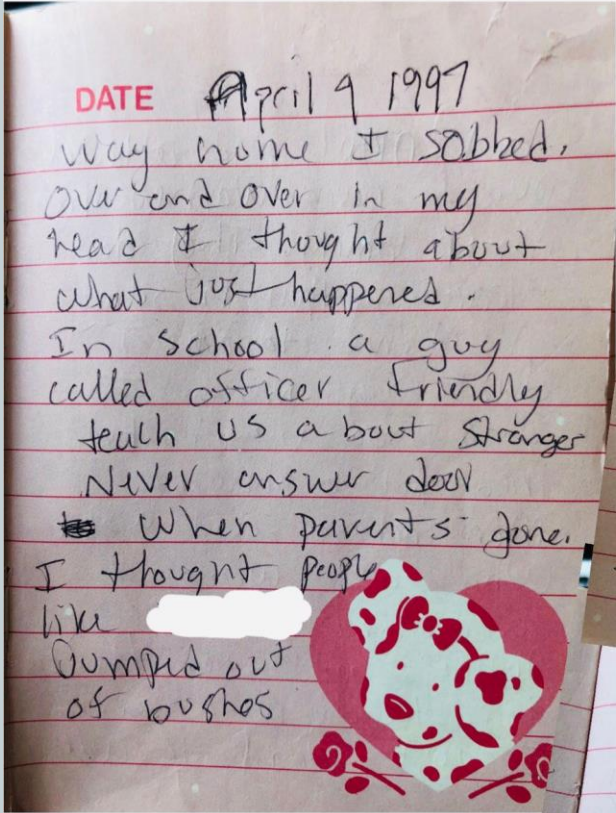 DATE April 9 1997
way home I sobbed.
Over and over in my
head I thought about
what just happened.
In school a guy
called officer friendly
teach us about stranger
Never answer door
when parents gone.
I thought people
like
jumped out
of bushes